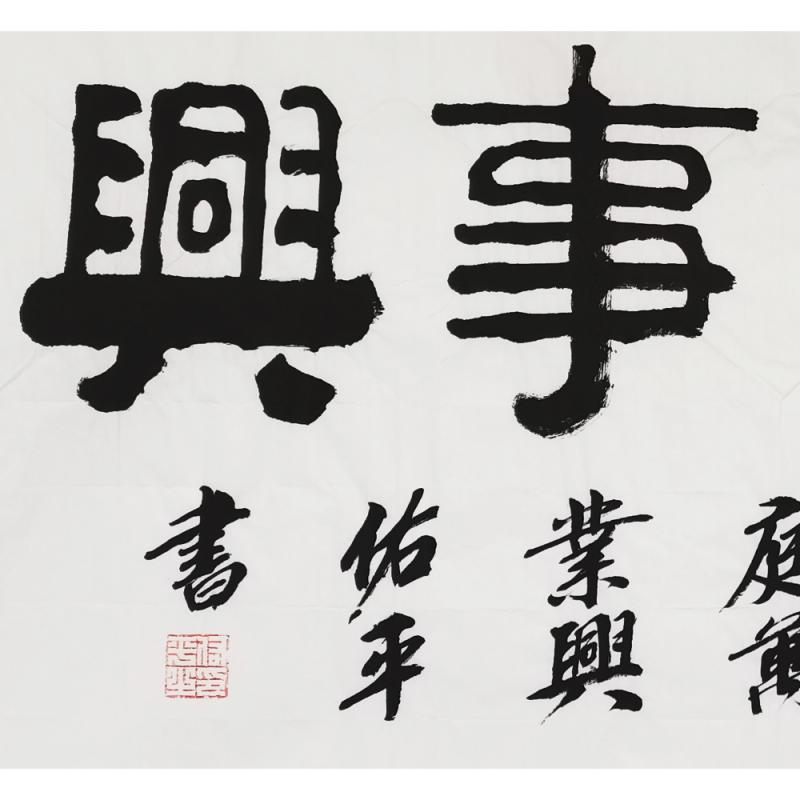 事興
庭萬
業興
佑平
書